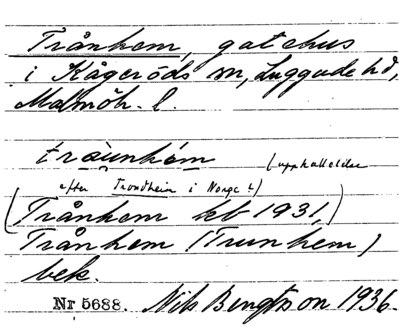 Trånhem, gatehus
i Kågeröds sn, Luggude hd,
Malmöh. l.
tràunhém (uppkallelse
efter Trondheim i Norge?)
(Trånhem kb 1931)
Trånhem (Trunhem)
bek.
Nr 5688. Nils Bengtsson 1936.